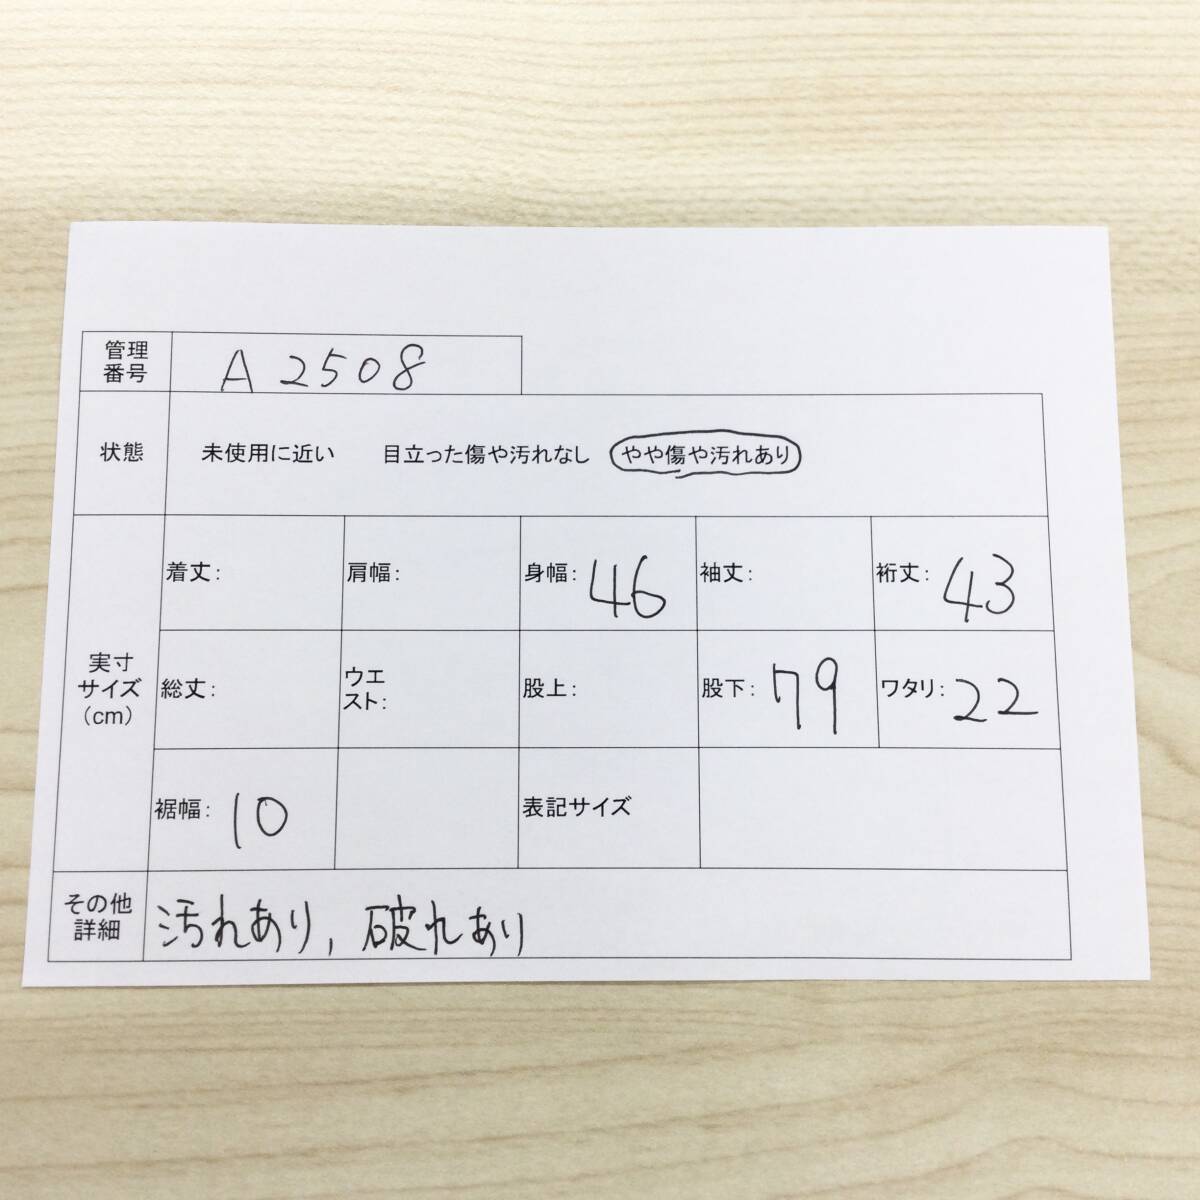 管理
番号
A 2508
状態
未使用に近い 目立った傷や汚れなし やや傷や汚れあり
実寸
サイズ
(cm)
着丈: 肩幅: 身幅: 46 袖丈: 裄丈: 43
総丈: ウエ
スト: 股上: 股下: 79 ワタリ: 22
裾幅: 10 表記サイズ
その他
詳細
汚れあり, 破れあり